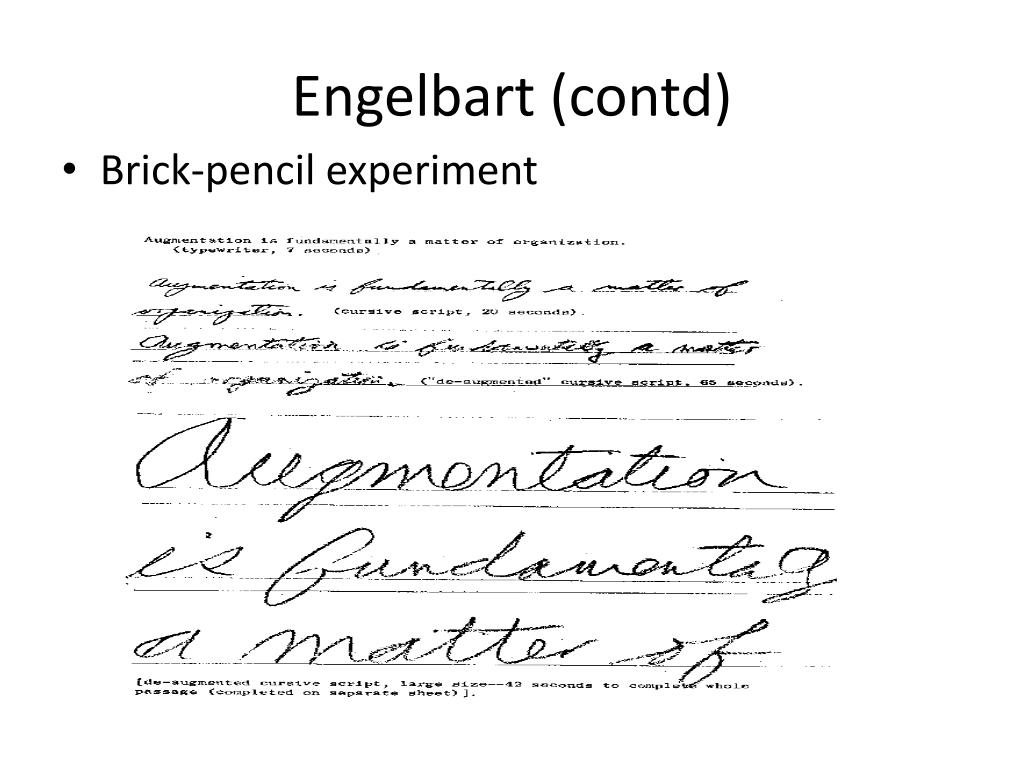 Engelbart (contd)
• Brick-pencil experiment
Augmentation is fundamentally a matter of organization.
(typewriter, 7 seconds)
Augmentation is fundamentally a matter of
organization. (cursive script, 20 seconds).
Augmentation is fundamentally a matter
of organization. ("de-augmented" cursive script, 65 seconds).
Augmentation
is fundamentally
a matter of
[de-augmented cursive script, large size--42 seconds to complete whole
passage (completed on separate sheet)].